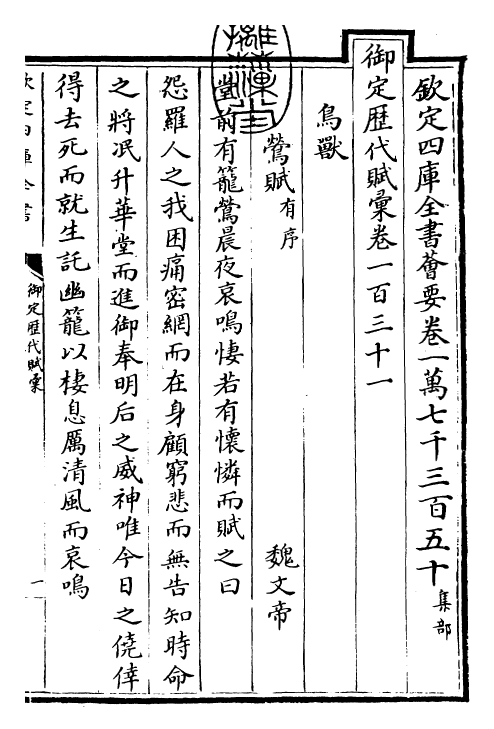 欽定四庫全書薈要卷一萬七千三百五十集部
御定歷代賦彙卷一百三十一
鳥獸
鶯賦有序 魏文帝
堂前有籠鶯晨夜哀鳴悽若有懷憐而賦之曰
怨羅人之我困痛密網而在身顧窮悲而無告知時命
之將泯升華堂而進御奉明后之威神唯今日之僥倖
得去死而就生託幽籠以棲息厲清風而哀鳴
欽定四庫全書
御定歷代賦彙
一